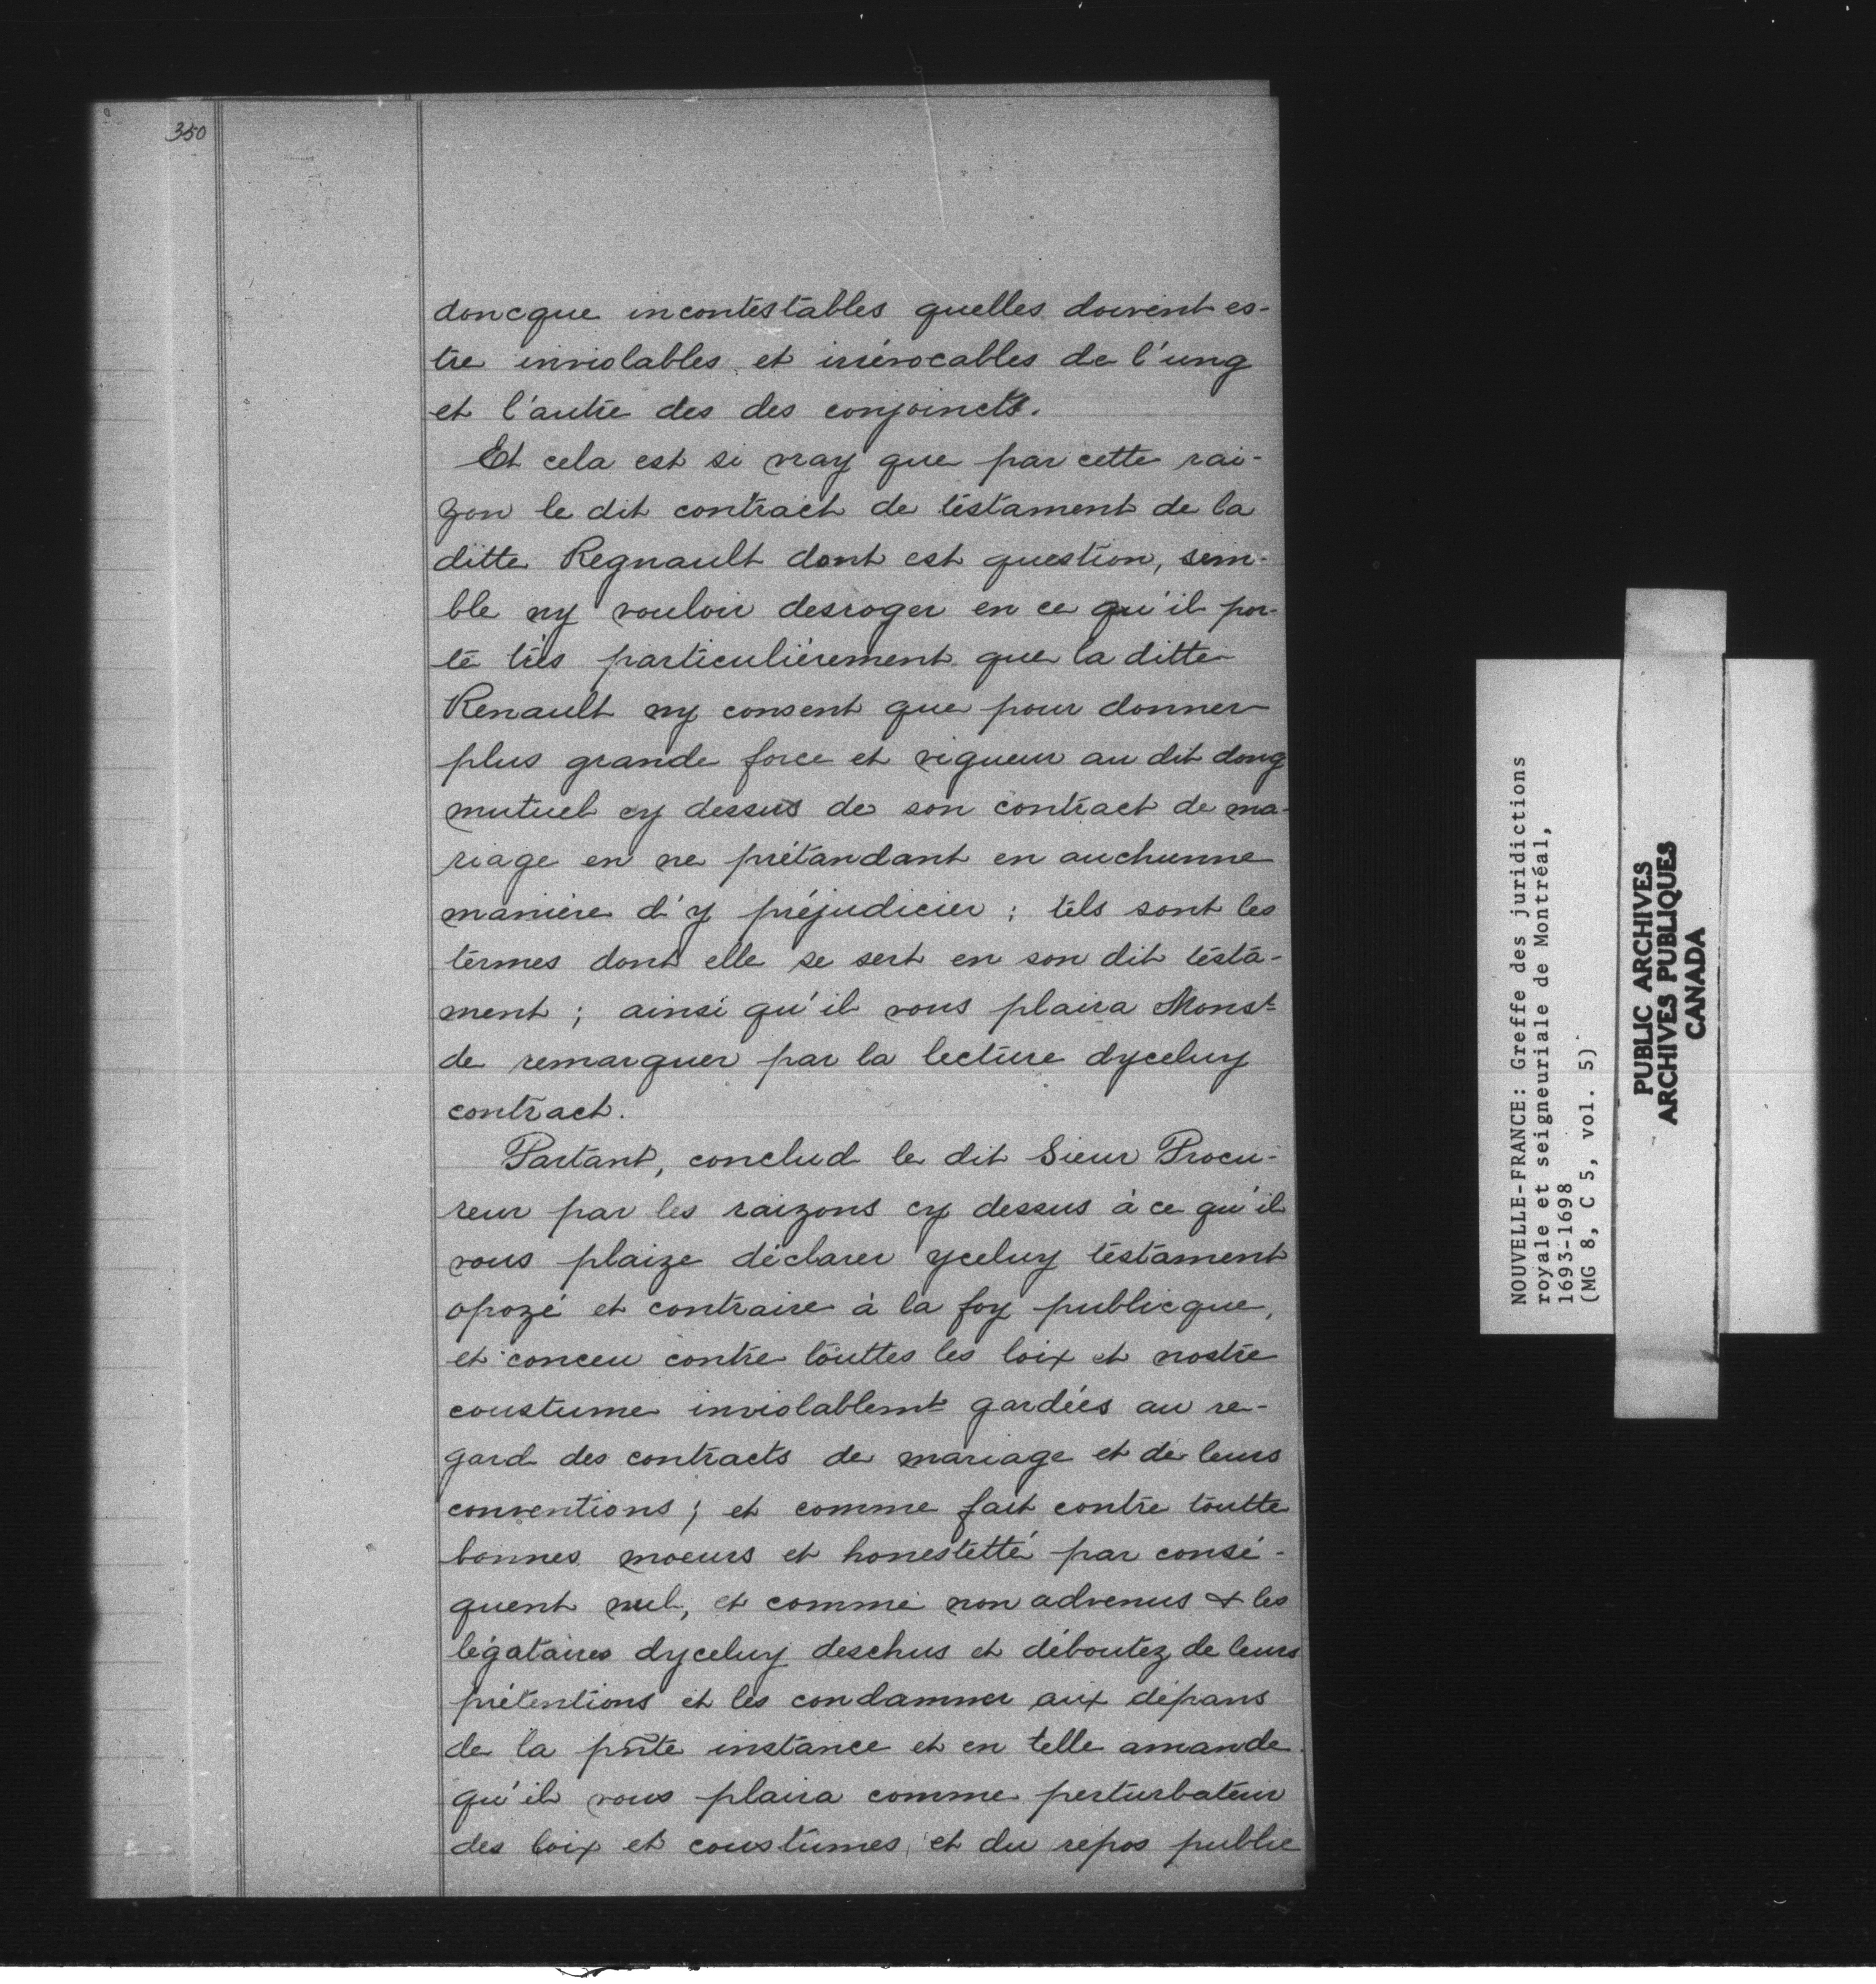 350
doncque incontestables quelles doivent es-
tre inviolables et irrévocables de l'ung
et l'autre des des conjoincts.
Et cela est si vray que par cette rai-
zon le dit contract de testament de la
ditte Regnault dont est question, sem-
ble ny vouloir desroger en ce qu'il por-
te très particulièrement que la ditte
Renault ny consent que pour donner
plus grande force et vigueur au dit dong
mutuel cy dessus de son contract de ma-
riage en ne prétandant en auchunne
manière d'y préjudicier ; tels sont les
termes dont elle se sert en son dit testa-
ment ; ainsi qu'il vous plaira Monst
de remarquer par la lecture dyceluy
contract.
Partant, conclud le dit Sieur Procu-
reur par les raizons cy dessus à ce qu'il
vous plaize déclarer yceluy testament
opozé et contraire à la foy publicque,
et conceu contre touttes les loix et nostre
coustume inviolablemt gardées au re-
gard des contracts de mariage et de leurs
conventions ; et comme fait contre toutte
bonnes moeurs et honestetté par consé-
quent nul, et comme non advenus & les
légataires dyceluy deschus et déboutez de leurs
prétentions et les condamner aux dépans
de la pñte instance et en telle amande
qu'il vous plaira comme perturbateur
des loix et coustumes et du repos public
NOUVELLE-FRANCE: Greffe des juridictions
royale et seigneuriale de Montréal,
1693-1698
(MG 8, C 5, vol. 5)
PUBLIC ARCHIVES
ARCHIVES PUBLIQUES
CANADA